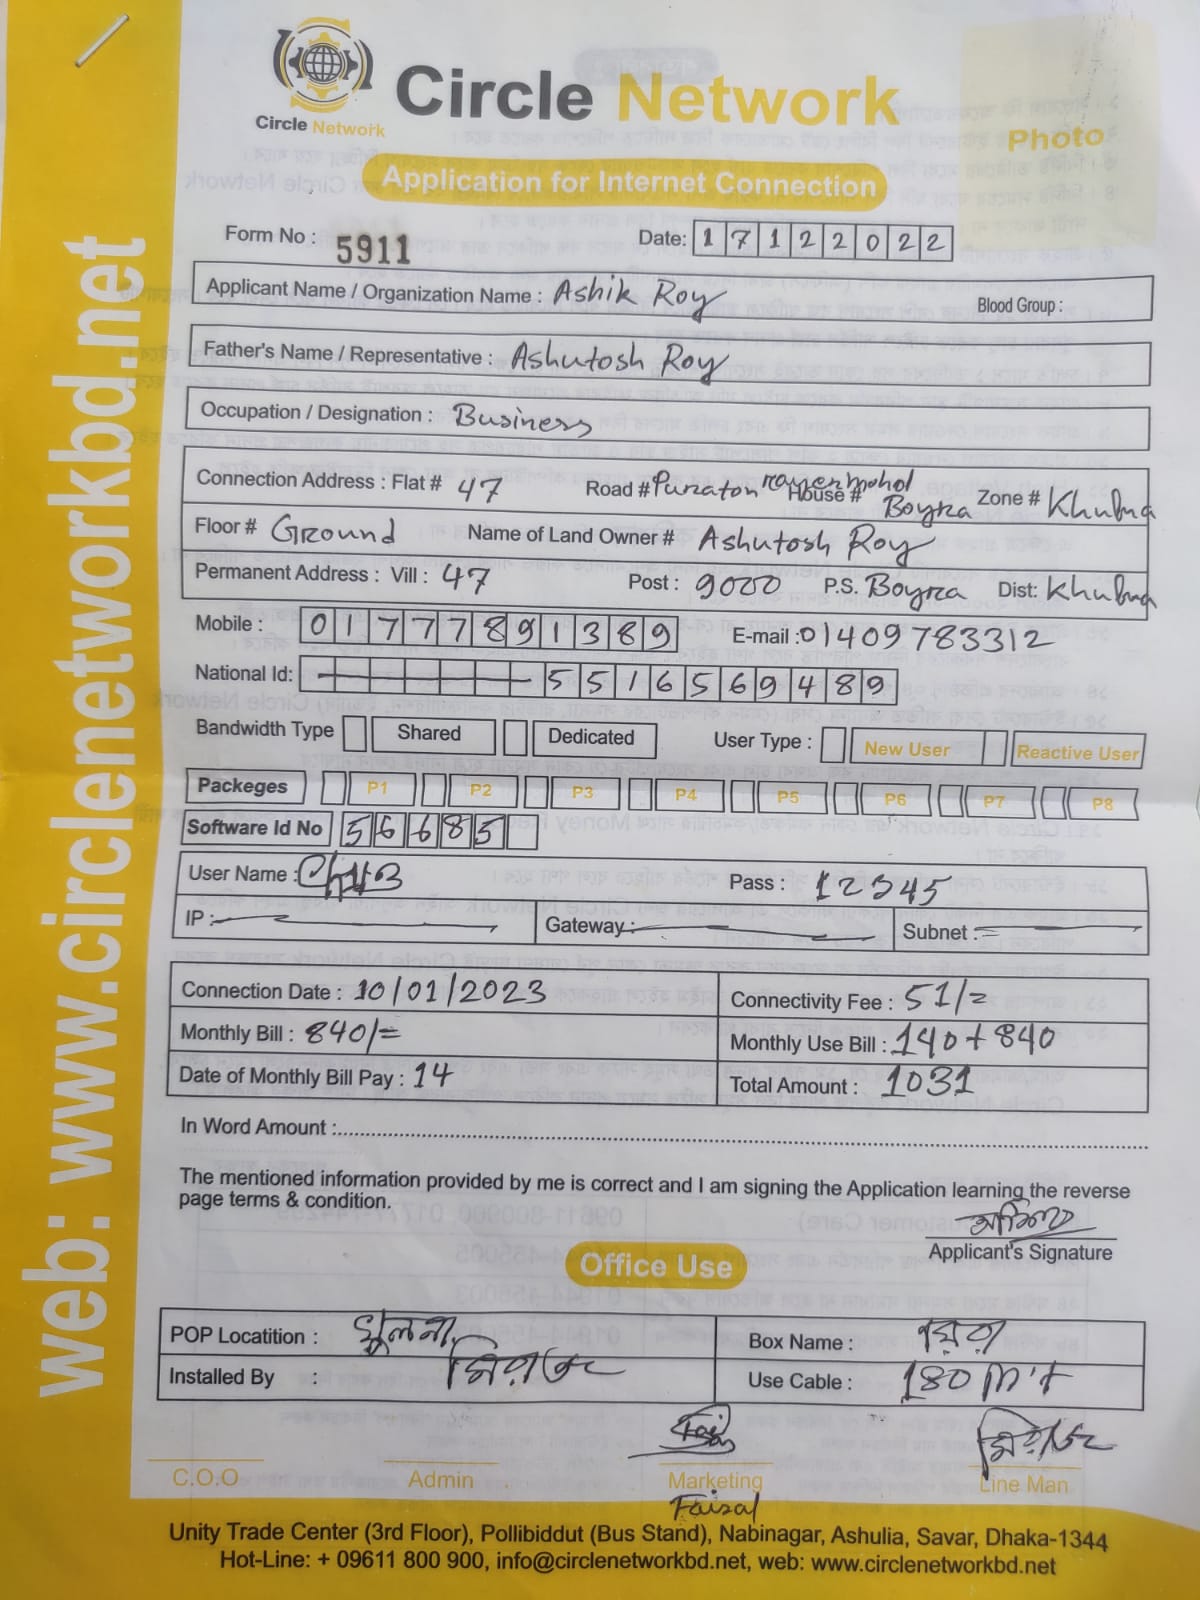 web: www.circlenetworkbd.net
Circle Network
Circle Network
Photo
Application for Internet Connection
Form No : 5911 Date: 17122022
Applicant Name / Organization Name : Ashik Roy Blood Group :
Father's Name / Representative : Ashutosh Roy
Occupation / Designation : Business
Connection Address : Flat # 47 Road # Puraton rayermohol House # Boyra Zone # Khulna
Floor # Ground Name of Land Owner # Ashutosh Roy
Permanent Address : Vill : 47 Post : 9000 P.S. Boyra Dist: Khulna
Mobile : 01777891389 E-mail : 01409783312
National Id: 5516569489
Bandwidth Type Shared Dedicated User Type : New User Reactive User
Packeges P1 P2 P3 P4 P5 P6 P7 P8
Software Id No 56685
User Name : Pass : 12345
IP : Gateway : Subnet :
Connection Date : 10/01/2023 Connectivity Fee : 51/=
Monthly Bill : 840/= Monthly Use Bill : 140+840
Date of Monthly Bill Pay : 14 Total Amount : 1031
In Word Amount :
The mentioned information provided by me is correct and I am signing the Application learning the reverse
page terms & condition.
Applicant's Signature
Office Use
POP Locatition : খুলনা Box Name :
Installed By : Use Cable : 180 m't
C.O.O Admin Marketing Line Man
Faisal
Unity Trade Center (3rd Floor), Pollibiddut (Bus Stand), Nabinagar, Ashulia, Savar, Dhaka-1344
Hot-Line: + 09611 800 900, info@circlenetworkbd.net, web: www.circlenetworkbd.net